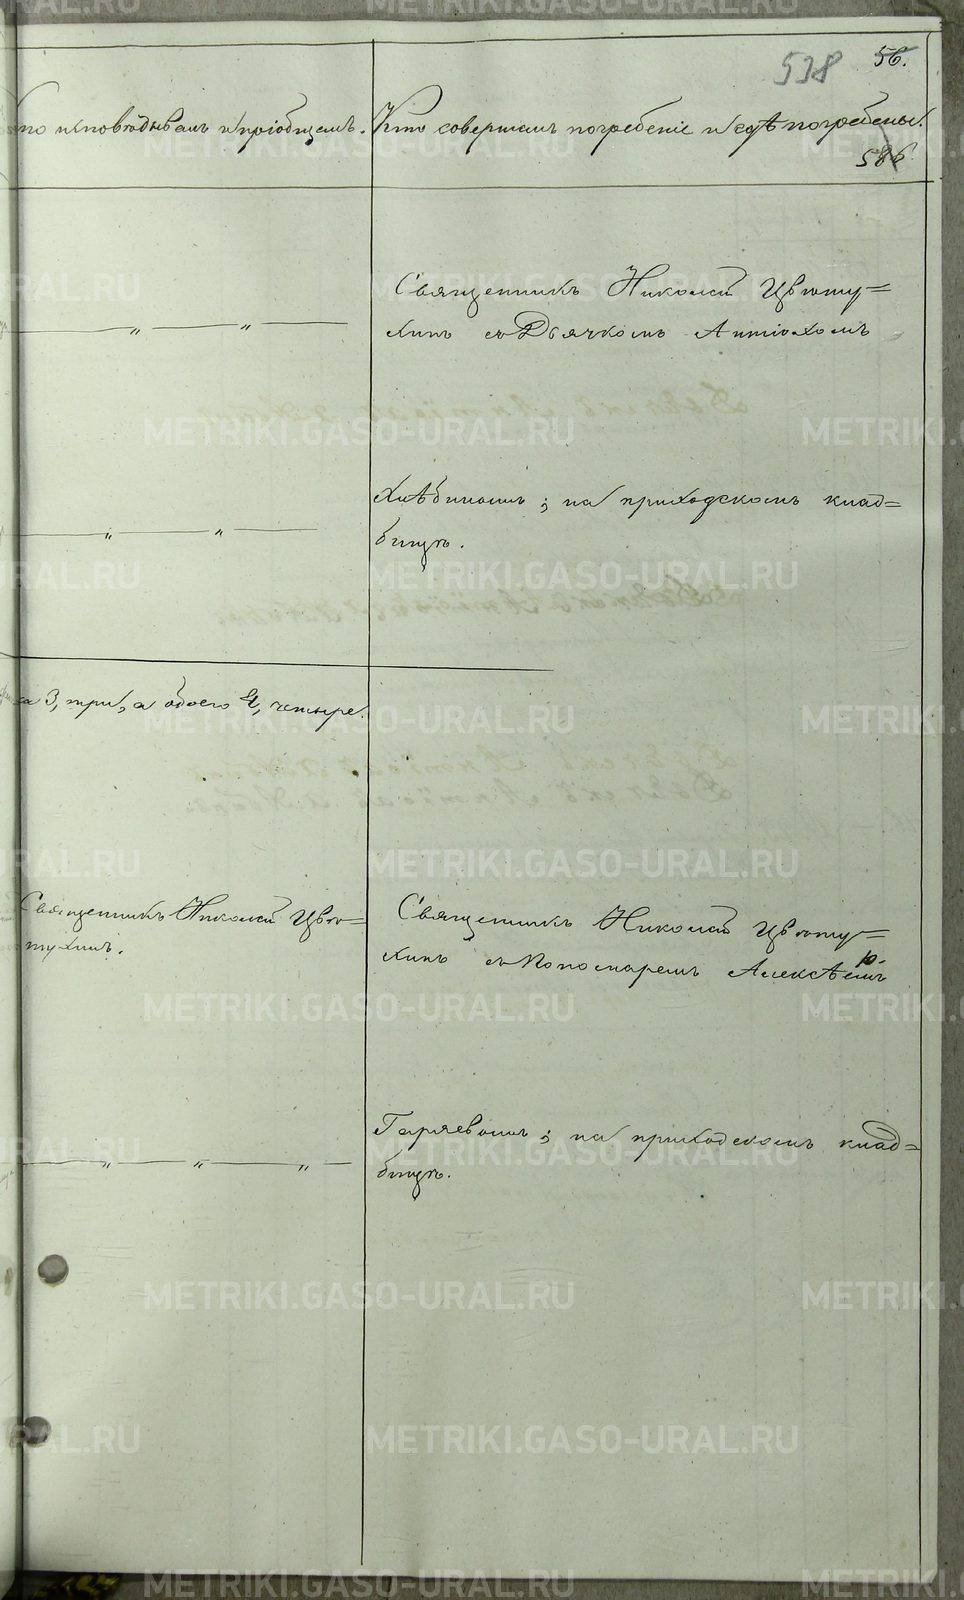 538 56.
Кто исповѣдывалъ и пріобщалъ. Кто совершалъ погребеніе и гдѣ погребены.
586
Священникъ Николай Цвѣту=
хинъ съ Дьячкомъ Антіохомъ
— „ — „ —
Хлѣбинымъ; на приходскомъ клад=
бищѣ.
— „ — „ —
3, три, а обоего 4, четыре.
Священникъ Николай Цвѣ=
тухинъ.
Священникъ Николай Цвѣту=
хинъ съ Пономаремъ Алексѣемъ
Гаряевымъ; на приходскомъ клад=
бищѣ.
— „ — „ — „ —
METRIKI.GASO-URAL.RU